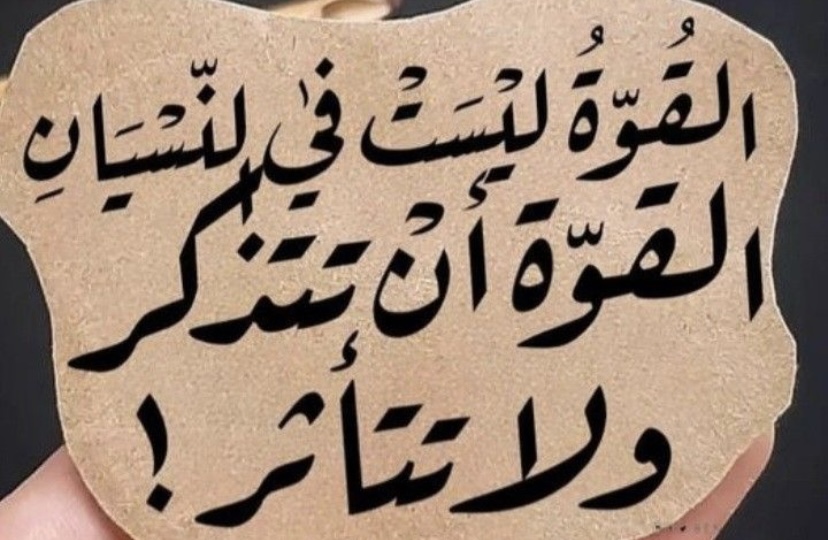 القُوّةُ ليْسَتْ في النّسْيَانِ
القوّة أنْ تتذكر
ولا تتأثر!